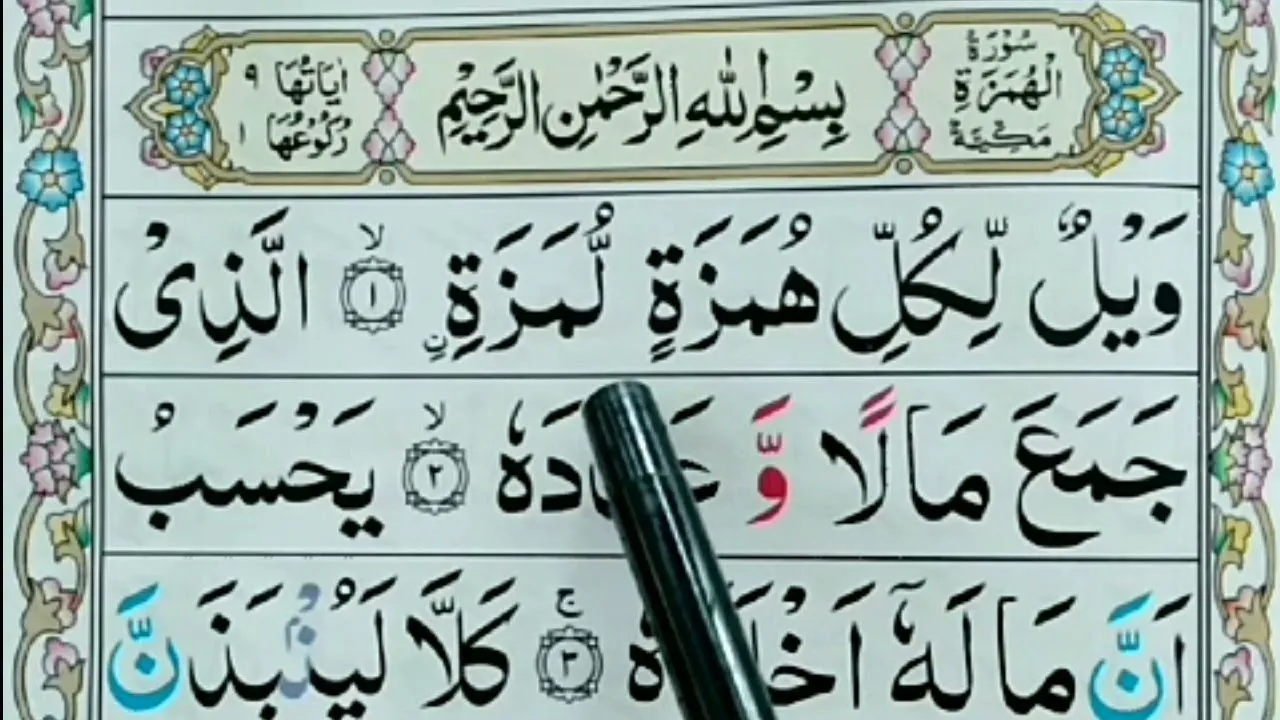 سُوْرَةُ الْهُمَزَةِ مَكِّيَّةٌ
بِسْمِ اللهِ الرَّحْمٰنِ الرَّحِيْمِ
اٰيَاتُهَا ٩ رُكُوْعُهَا ١
وَيْلٌ لِّكُلِّ هُمَزَةٍ لُّمَزَةِ ۙ﴿١﴾ الَّذِىْ
جَمَعَ مَالًا وَّ ﴿٢﴾ۙ يَحْسَبُ
اَنَّ مَالَهٗۤ ﴿٣﴾ۚ كَلَّا لَيُنْۢبَذَنَّ